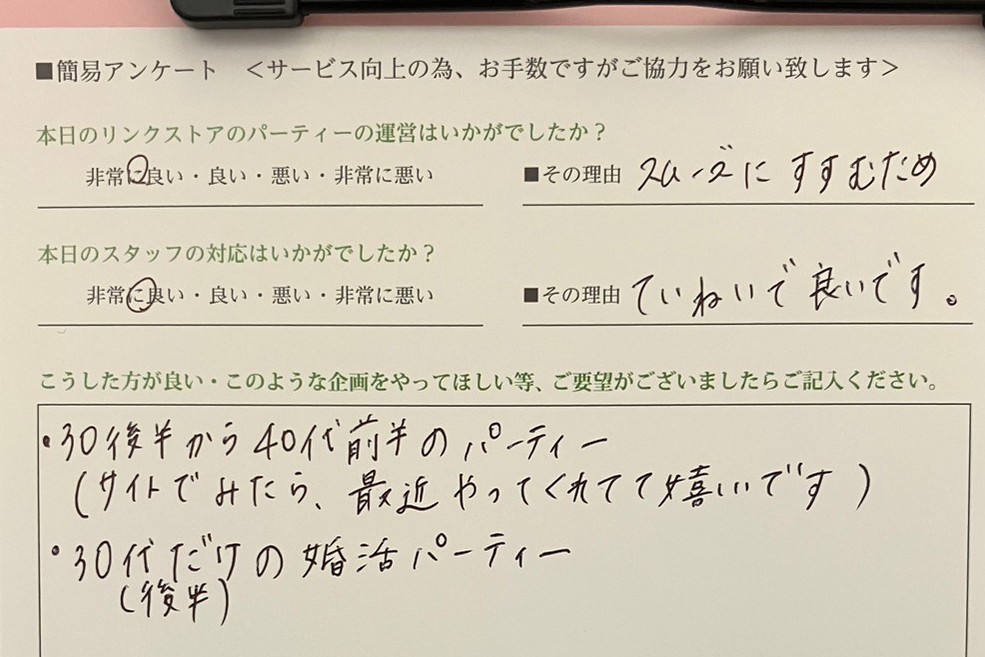 ■簡易アンケート ＜サービス向上の為、お手数ですがご協力をお願い致します＞
本日のリンクストアのパーティーの運営はいかがでしたか？
非常に良い・良い・悪い・非常に悪い ■その理由 スムーズにすすむため
本日のスタッフの対応はいかがでしたか？
非常に良い・良い・悪い・非常に悪い ■その理由 ていねいで良いです。
こうした方が良い・このような企画をやってほしい等、ご要望がございましたらご記入ください。
・30後半から40代前半のパーティー
（サイトでみたら、最近やってくれてて嬉しいです）
・30代だけの婚活パーティー
（後半）